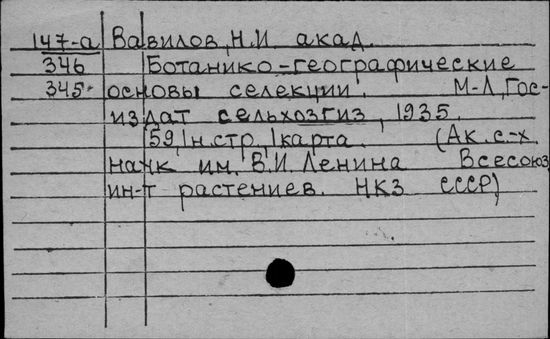 147-а Вавилов, Н.И акад.
346 Ботанико-географические
345 основы селекции. М-Л, Гос-
издат сельхозгиз, 1935.
59, 1н.стр, 1карта. (Ак. с-х
наук им. В.И. Ленина Всесоюз
ин-т растениев. НКЗ СССР)